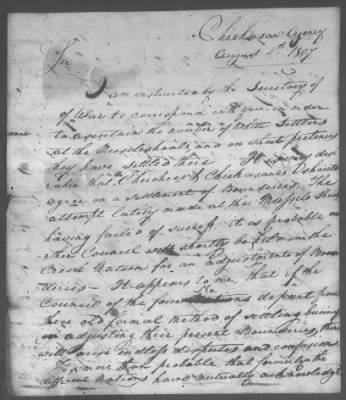 Chickasaw Agency
August 4th 1807
Sir
I am instructed by the Secretary
of War to correspond with you in order
to ascertain the number of White Settlers
at the Muscle shoals, and on what pretence
they have settled there It is very desi
rable that the Cherokees & Chickasaws should
agree on a settlement of Bounderies. The
attempt lately made at the Mussele Shoals
having failed of success. it is probable an
other Council will shortly be held in the
Creek Nation for an adjustment of Boun
deries — It appears to me, that if the
Council of the four Nations depart from
there old formal method of setling
in adjusting their present Bounderies, there
will arise endless disputes and confusions
It's more than probable, that formerly the
different Nations have mutually acknowledge